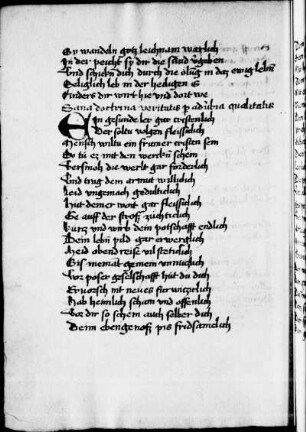 Sy wandeln gotz leichnam warlich
In der peicht sy dir die sünd vergeben
Vnd schickn dich durch die ölung in daz ewig lebn
Seliglich leb in der hediigen e
Anders dir wirt hie vnd dort we
Sana doctrina veritatis
Ein gesunde ler gar trostenlich
Der soltu volgen fleissiclich
Mensch wiltu ein frumer cristen sein
So tu ez mit den werckn schein
Versmoh die werlt gar forderlich
Vnd trag dein armut williclich
Leid vngemach gedulticlich
Hüt deiner wort gar fleissiclich
Ge auff der stroß züchticlich
Kurtz vnd wirb dein potschafft endlich
Dein lebn pild gar erwerglich
Meid obendreise vlisteclich
Biß niemat gemein vnniczlich
Vor poser geselschafft hüt du dich
Ervorsch nit neues fürwitziclich
Hab heimlich scham vnd offenlich
Vor dir so schem auch selber dich
Deim ebengenoß piß fridsamclich